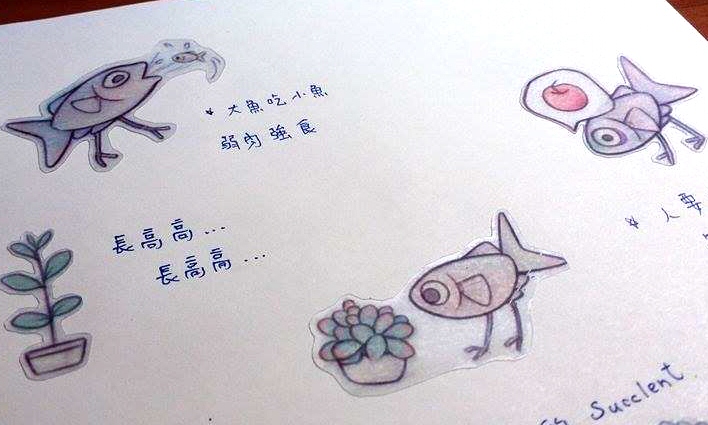 * 大魚吃小魚
弱肉強食
* 人要
長高高...
長高高...
Succlent